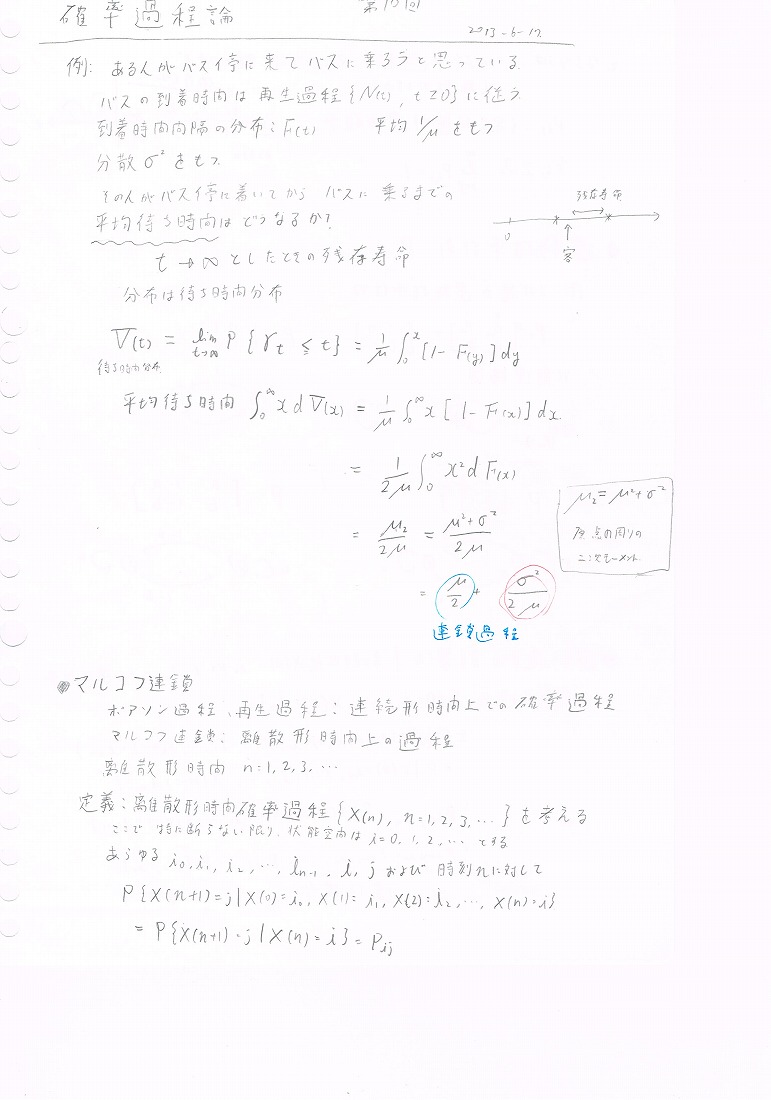 確率過程論 第10回
2013-6-17
例: ある人がバス停に来てバスに乗ろうと思っている.
バスの到着時間は再生過程{N(t), t≥0}に従う
到着時間間隔の分布: F(t) 平均 1/μ をもつ
分散 σ² をもつ
その人がバス停に着いてから バスに乗るまでの
平均待ち時間はどうなるか?
残存寿命
0
客
t→∞としたときの残存寿命
分布は待ち時間分布
V(t) = lim t→∞ P{γt ≤ t} = 1/μ ∫₀ˣ[1-F(y)]dy
待ち時間分布
平均待ち時間 ∫₀^∞ x d V(x) = 1/μ ∫₀^∞ x[1-F(x)]dx.
= 1/2μ ∫₀^∞ x² d F(x)
= μ₂/2μ = μ²+σ²/2μ
μ₂=μ²+σ²
原点の周りの
二次モーメント
= μ/2 + σ²/2μ
連鎖過程
マルコフ連鎖
ポアソン過程、再生過程: 連続形時間上での確率過程
マルコフ連鎖: 離散形時間上の過程
離散形時間 n=1,2,3,…
定義: 離散形時間確率過程{X(n), n=1,2,3,…}を考える
ここで 特に断らない限り、状態空間は i=0,1,2,… とする
あらゆる i₀,i₁,i₂,…,iₙ₋₁,i,j および 時刻nに対して
P{X(n+1)=j|X(0)=i₀, X(1)=i₁, X(2)=i₂,…, X(n)=i}
= P{X(n+1)=j|X(n)=i} = Pij